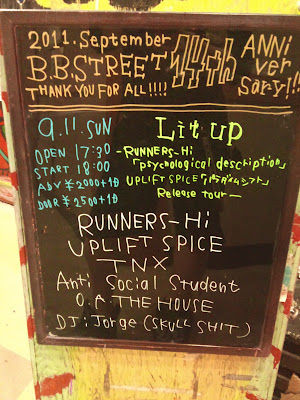 2011. September
B.B.STREET
THANK YOU FOR ALL!!!!
14th
ANNi
ver
sary!!!
9.11.SUN
OPEN 17:30
START 18:00
ADV ¥2000+1D
DOOR ¥2500+1D
Lit up
-RUNNERS-Hi
「psychological description」
UPLIFT SPICE
Release tour-
RUNNERS-Hi
UPLIFT SPICE
TNX
Anti Social Student
O.A THE HOUSE
DJ:Jorge (SKULL SHIT)